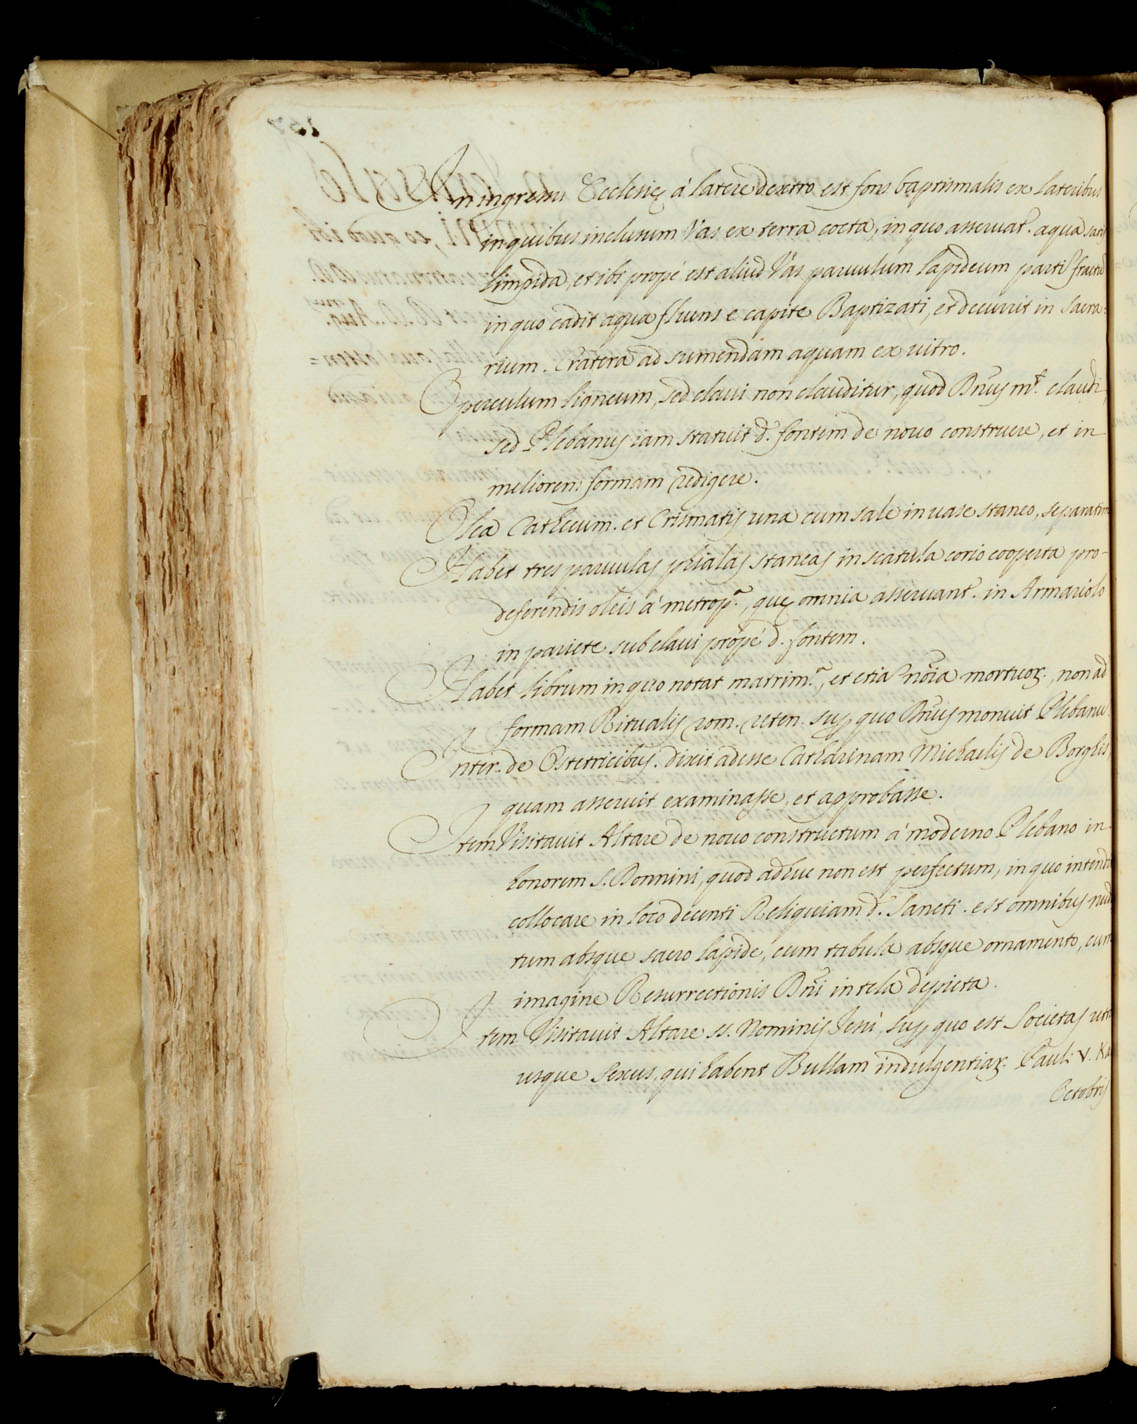 In ingressu Ecclesię à latere dextro est fons baptismalis ex lateribus
in quibus inclusum Vas ex terra cocta, in quo asseruat.r aqua satis
limpida, et ibi propè est aliud Vas paruulum lapideum parti
in quo cadit aqua fluens e capite Baptizati, et decurrit in Sacra=
rium. Cratera ad sumendam aquam ex uitro.
Operculum ligneum, sed claui non clauditur, quod Dñus m.t claudi,
sed Plebanus iam statuit d. fontem de nouo construere, et in
meliorem formam redigere.
Olea Cathecum. et Crismatis una cum sale in uase staneo, separatim
Habet tres paruulas phialas staneas in scatula corio cooperta pro-
deferendis oleis à metrop.a, quę omnia asseruant.r in Armariolo
in pariete sub claui propè d. fontem.
Habet librum in quo notat matrim.a, et etiã nõia mortuoꝝ., non ad
formam Ritualis rom. reten. sup quo Dñus monuit Plebanu
Inter. de Obstetricibus. dixit adesse Catharinam Michaelis de Borghis,
quam asseruit examinasse, et approbasse.
Item Visitauit Altare de nouo constructum à moderno Plebano in
honorem S. Bonnini, quod adhuc non est perfectum, in quo intendit
collocare in loco decenti Reliquiam d. Sancti. est omnibus nud
tum absque sacro lapide, cum tabula absque ornamento, cum
imagine Resurrectionis Dñi in tela depicta.
Item Visitauit Altare SS. Nominis Jesu. sup quo est Societas utri
usque sexus, qui habent Bullam indulgentiaꝝ. Paul. V. Ka
Octobris